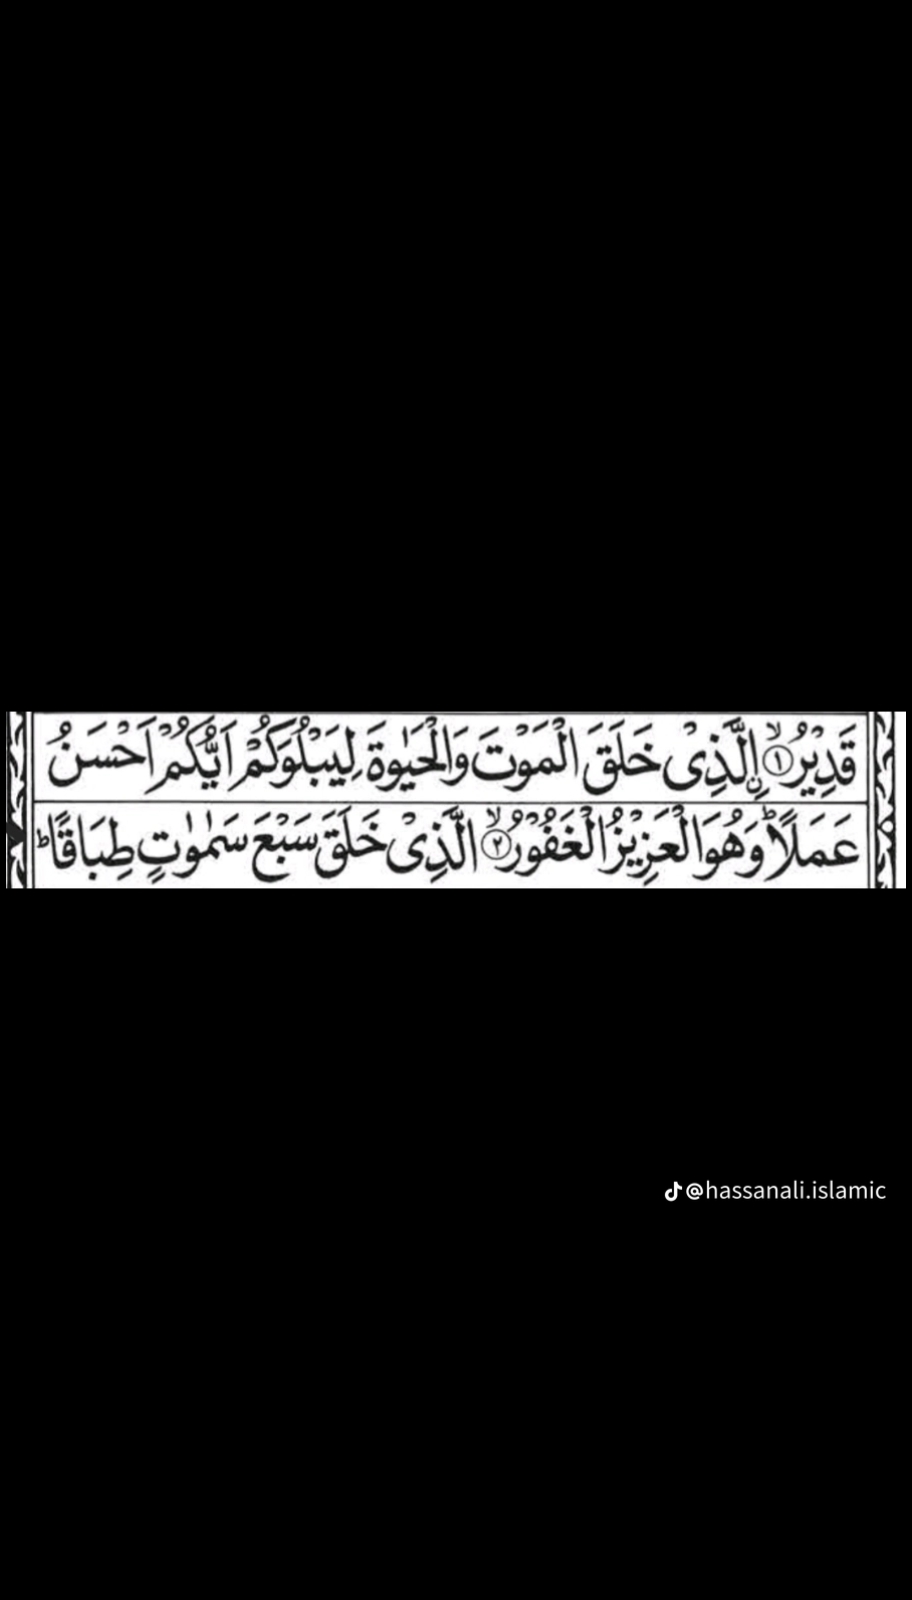 قَدِيْرُ ۙ﴿۱﴾ اِ۟لَّذِىْ خَلَقَ الْمَوْتَ وَالْحَيٰوةَ لِيَبْلُوَكُمْ اَيُّكُمْ اَحْسَنُ
عَمَلًا ؕ وَهُوَ الْعَزِيْزُ الْغَفُوْرُ ۙ﴿۲﴾ الَّذِىْ خَلَقَ سَبْعَ سَمٰوٰتٍ طِبَاقًا ؕ
@hassanali.islamic